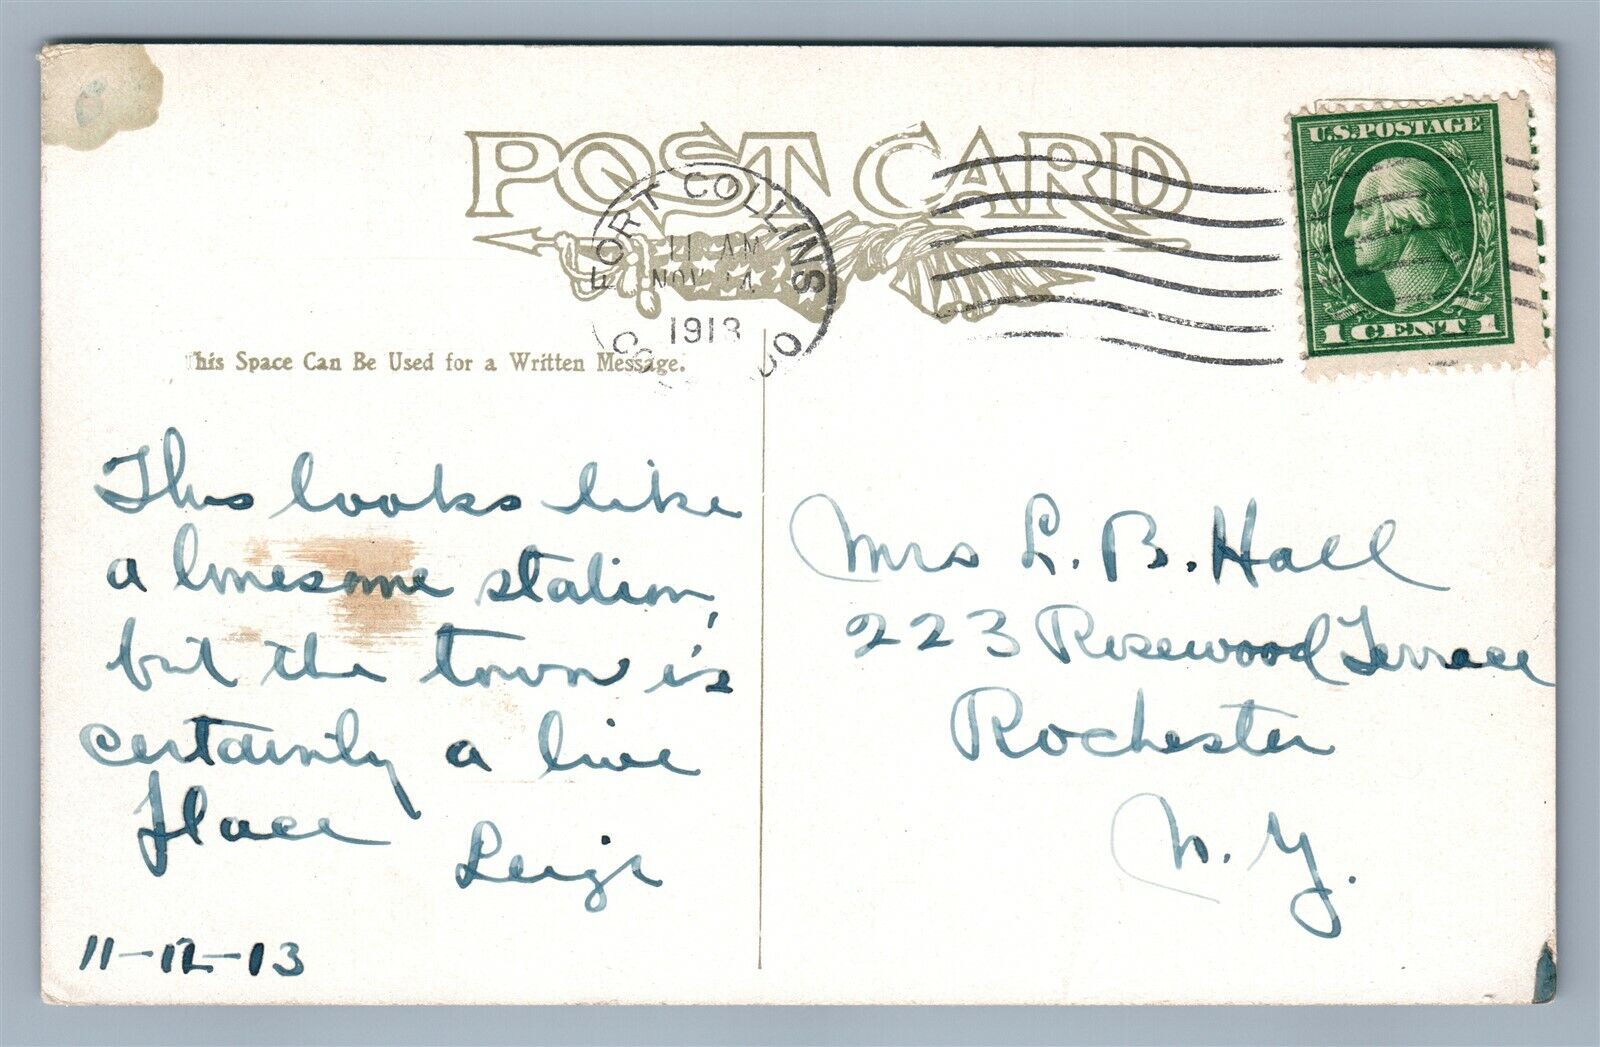 POST CARD
FORT COLLINS
11 AM
NOV 14
1913
COLO
U.S. POSTAGE
1 CENT 1
This Space Can Be Used for a Written Message.
This looks like
a lonesome station,
but the town is
certainly a live
place
Leigh
11-12-13
Mrs L. B. Hall
223 Rosewood Terrace
Rochester
N. Y.